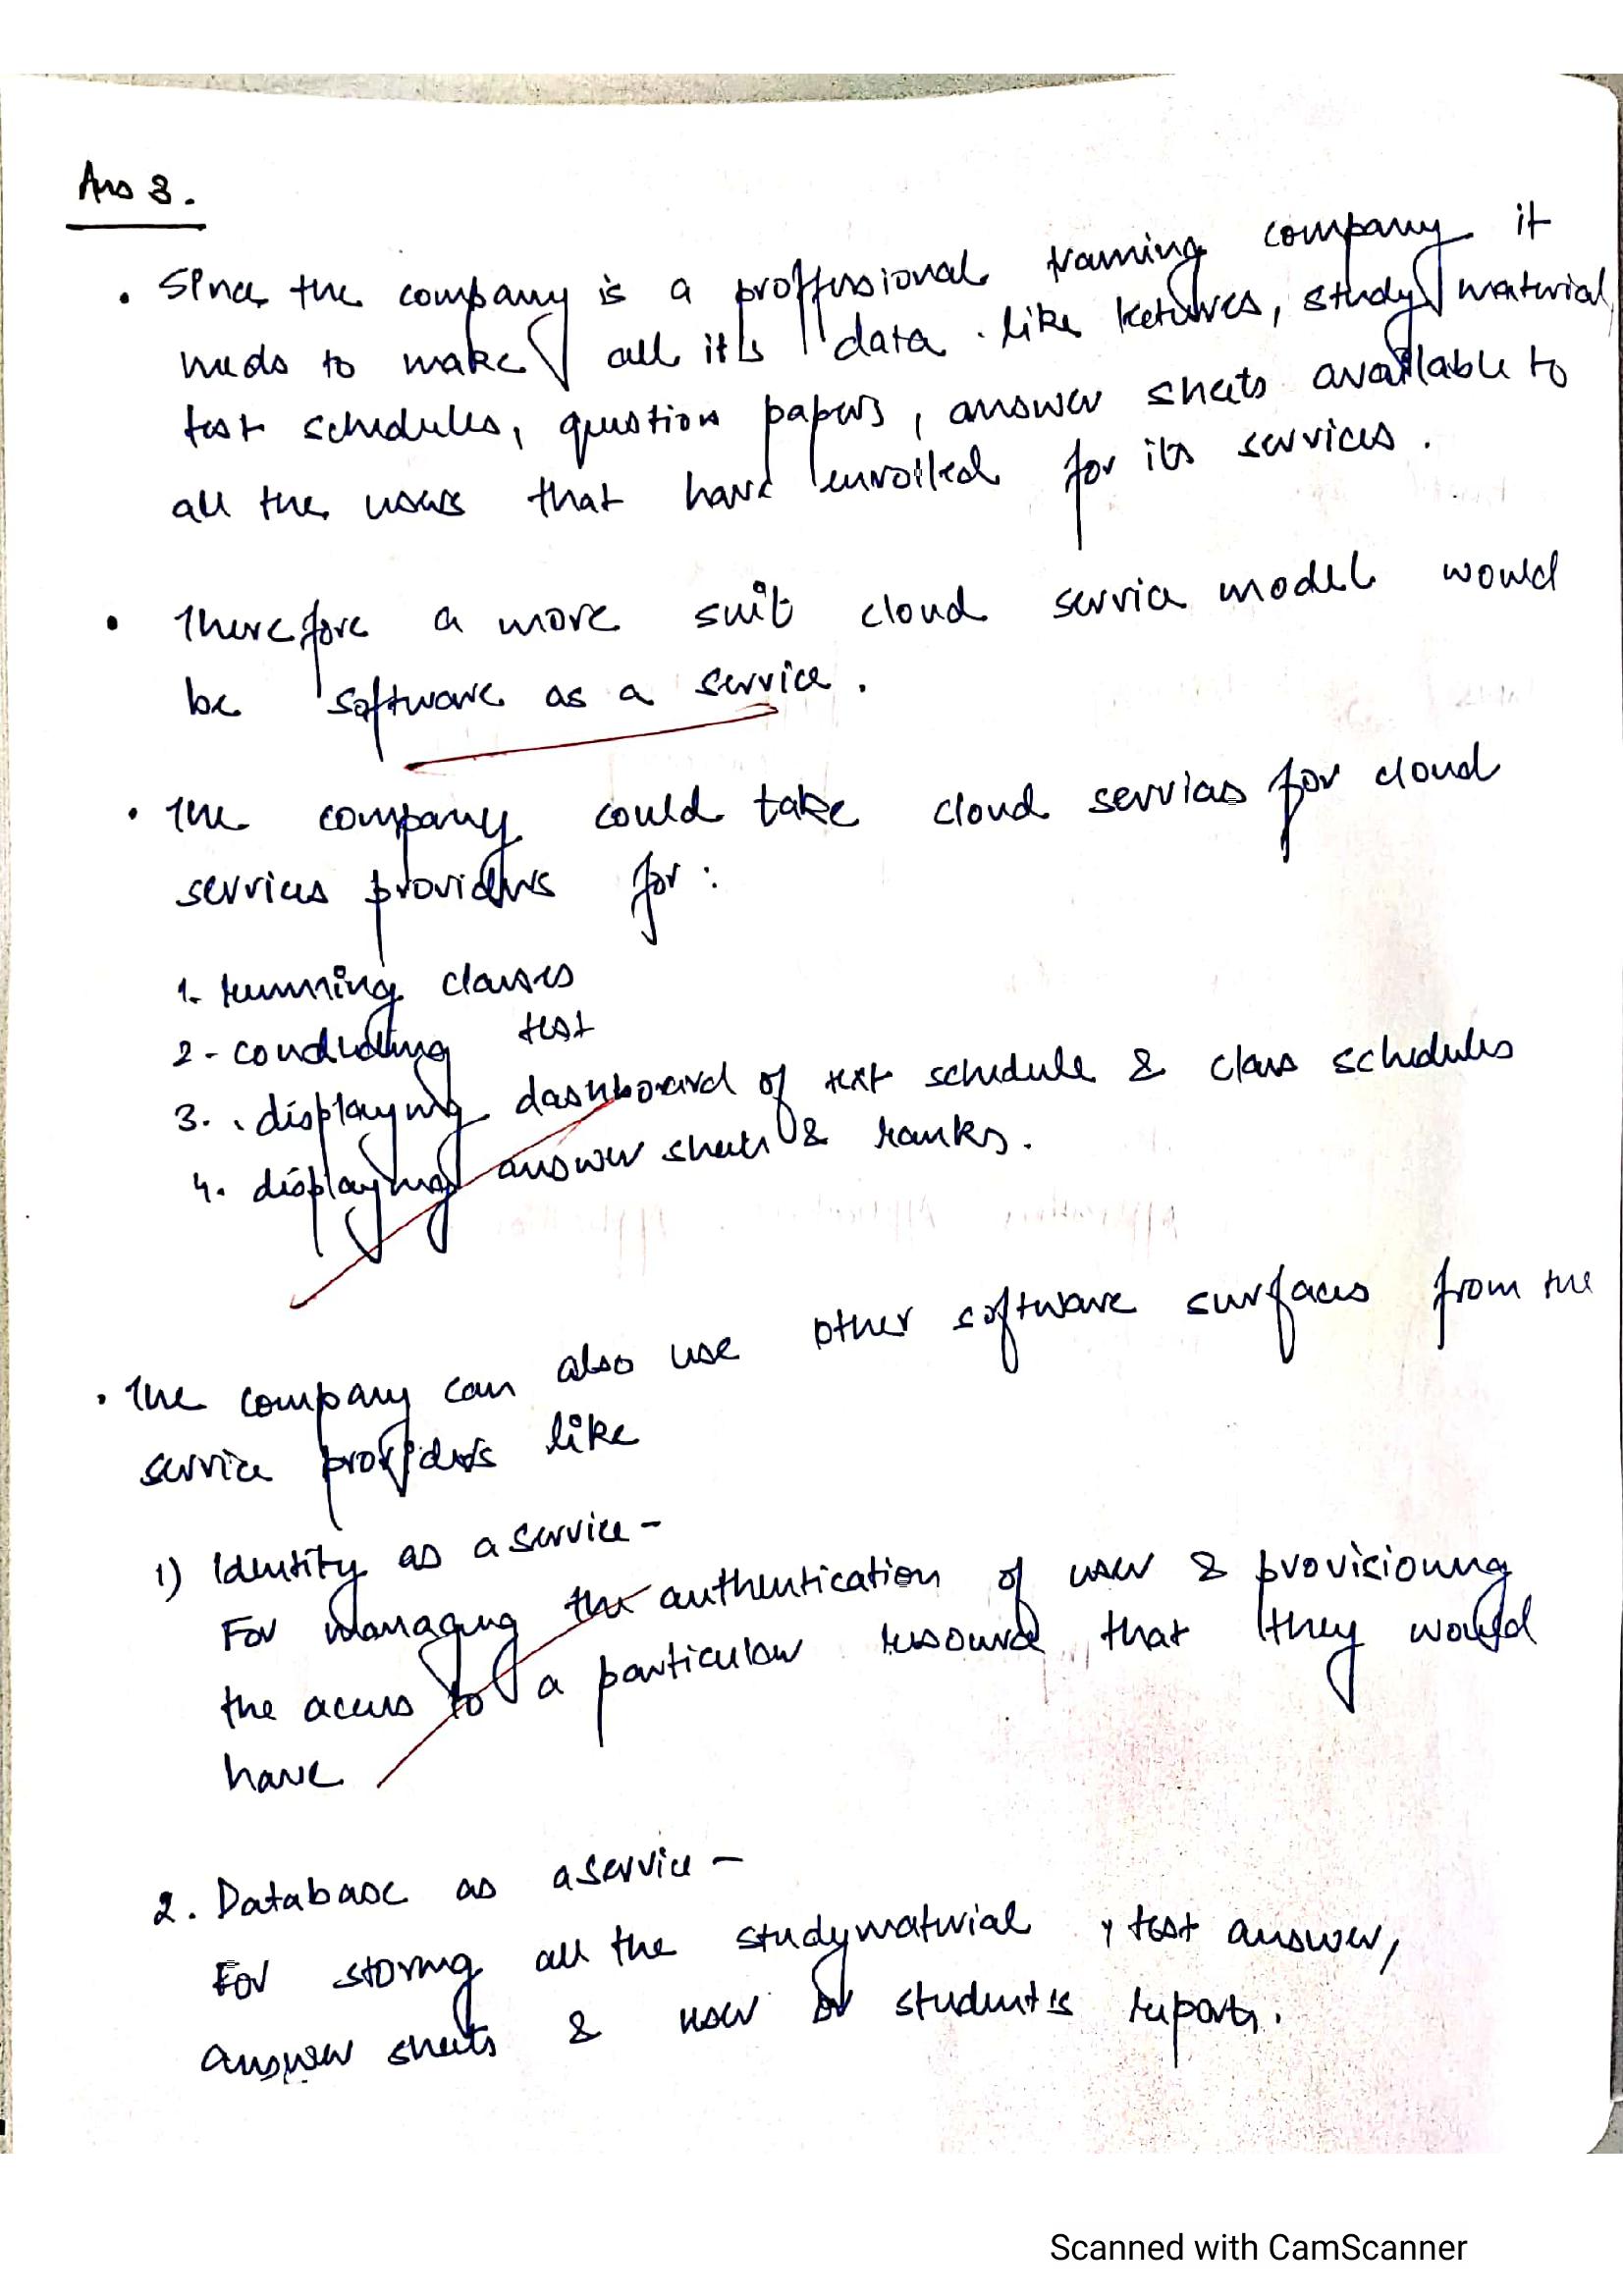 Ans 3.
• Since the company is a proffessional training company it
needs to make all it's data like lectures, study material
test schedules, question papers, answer sheets available to
all the users that have enrolled for its services.
• Therefore a more suit cloud service model would
be software as a service.
• The company could take cloud services for cloud
services providers for:
1. running classes
2 - conducting test
3. displaying dashboard of test schedule & class schedules
4. displaying answer sheets & ranks.
• The company can also use other software surfaces from the
service providers like
1) Identity as a service -
For managing the authentication of user & provisioning
the access to a particular resource that they would
have
2. Database as a service -
For storing all the study material, test answer,
answer sheets & user or student's reports.
Scanned with CamScanner